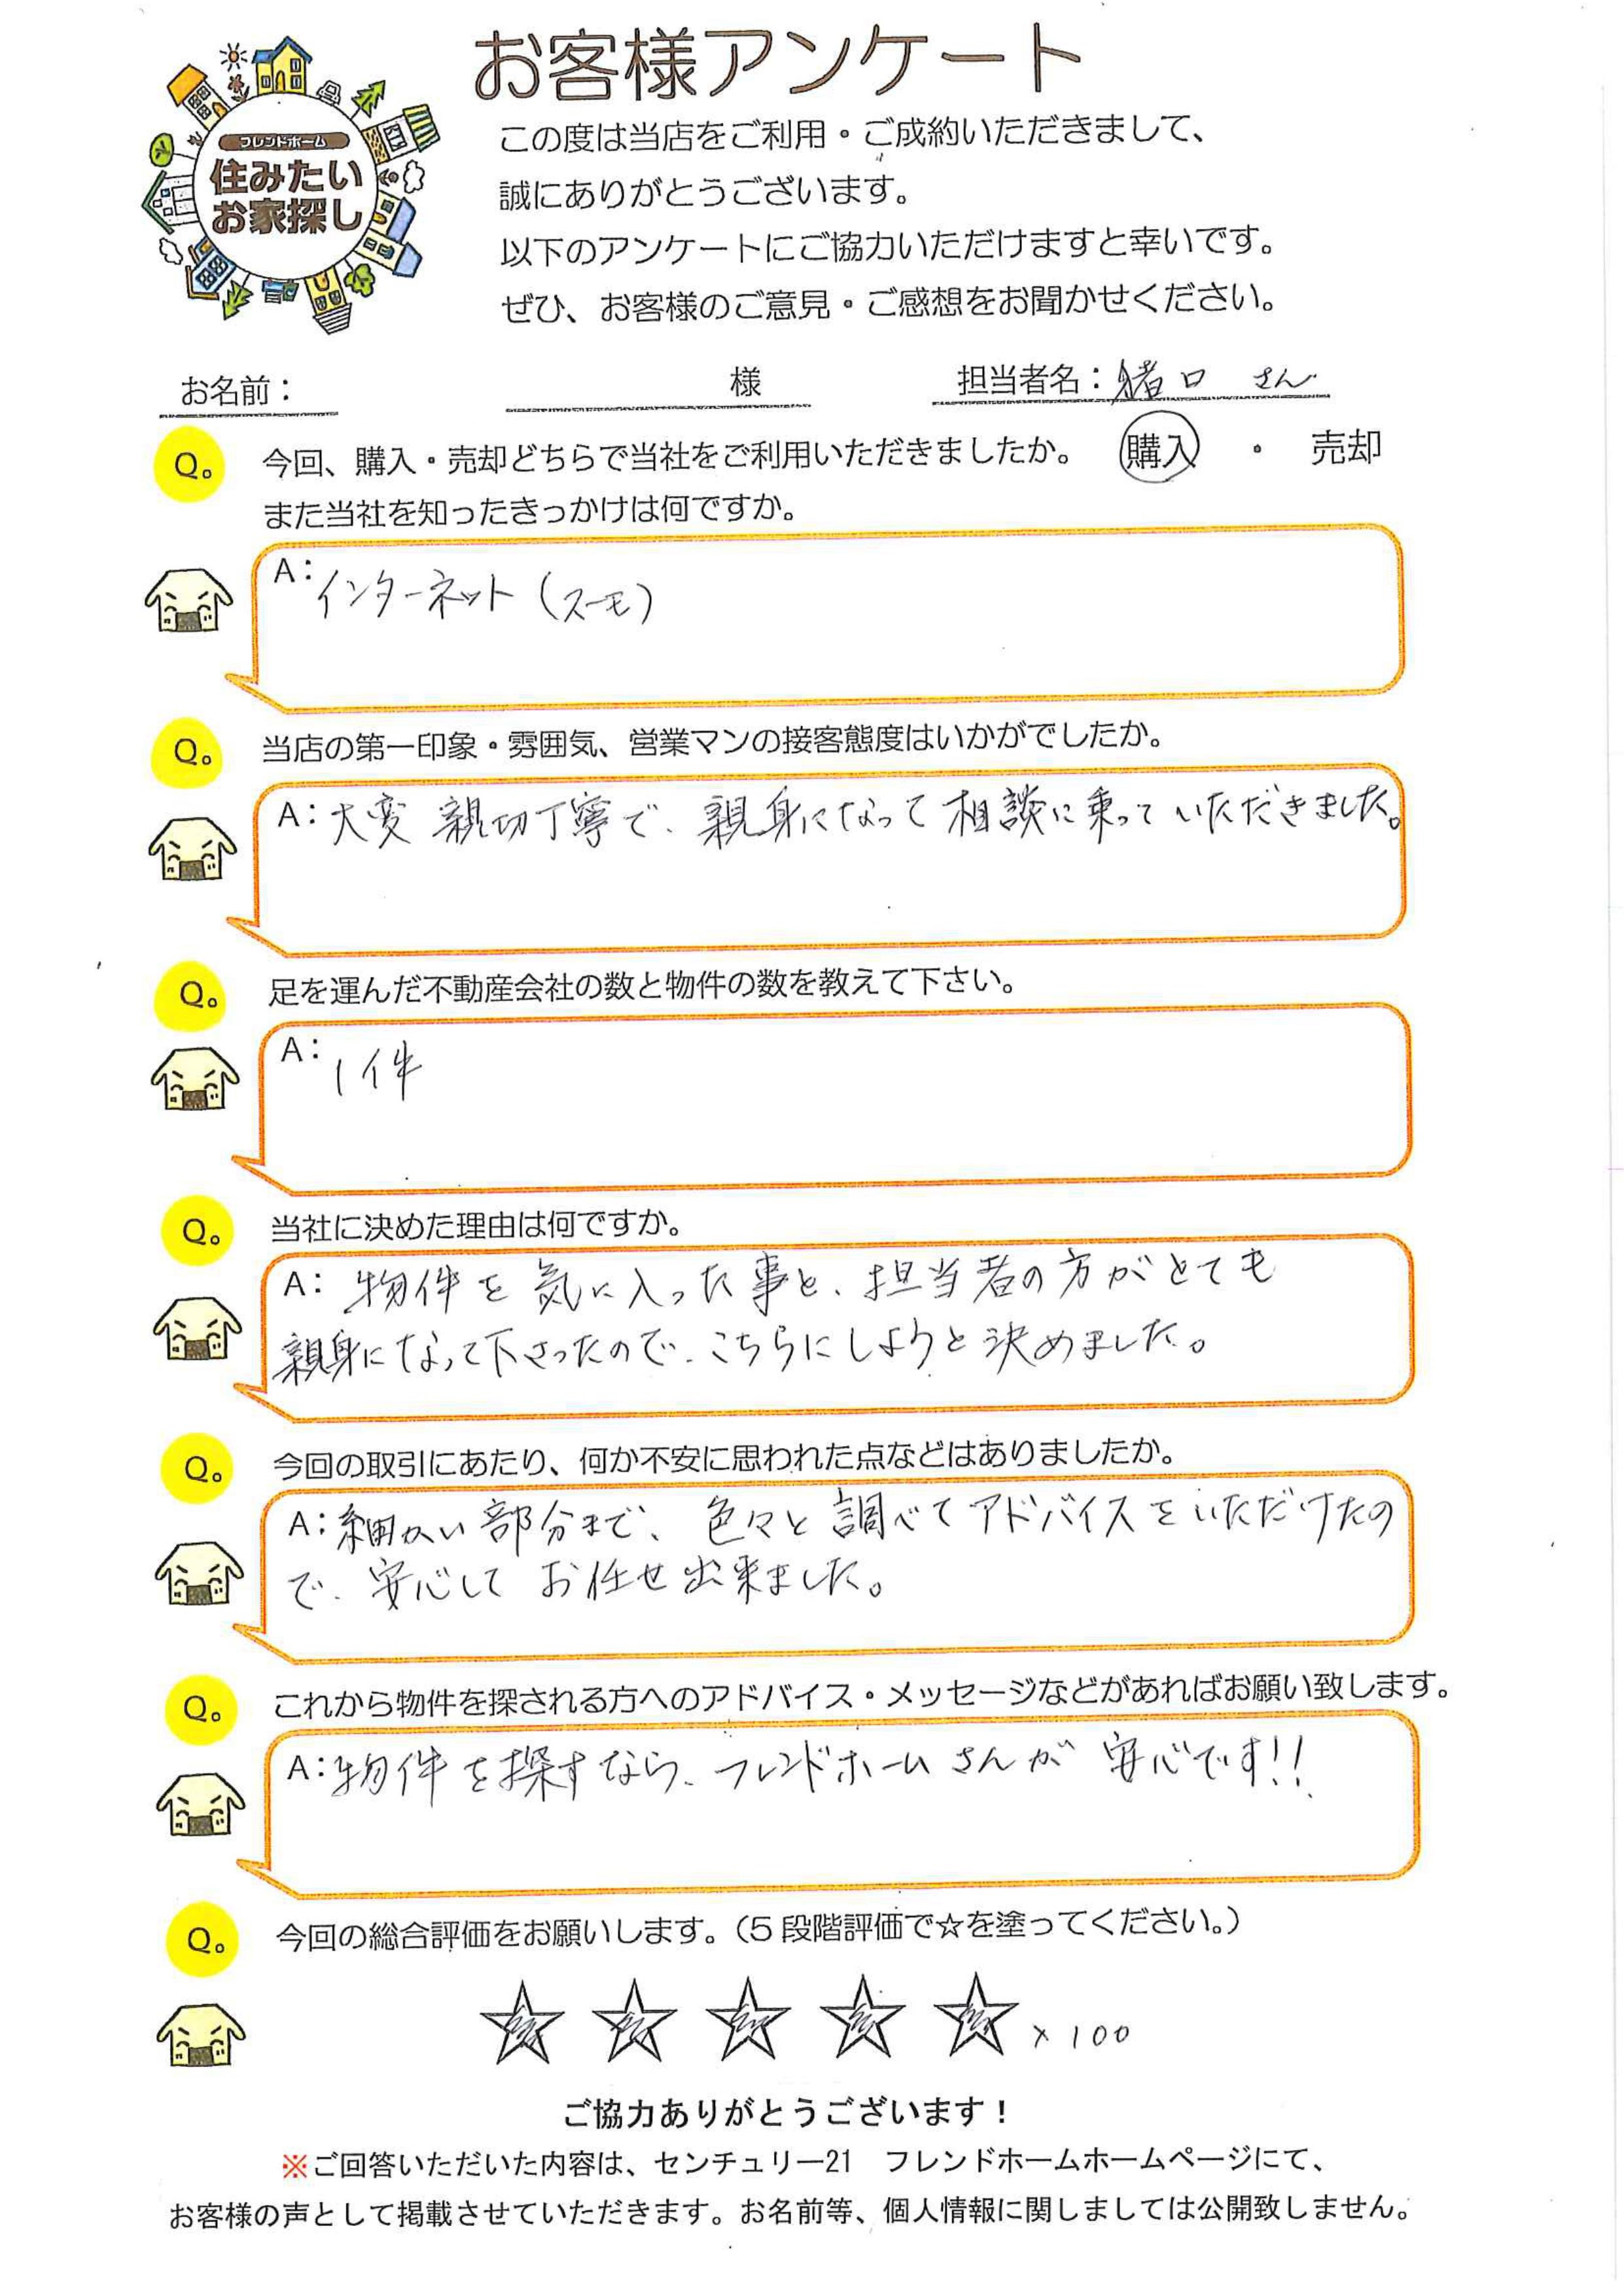 お客様アンケート
フレンドホーム
住みたい
お家探し
この度は当店をご利用・ご成約いただきまして、
誠にありがとうございます。
以下のアンケートにご協力いただけますと幸いです。
ぜひ、お客様のご意見・ご感想をお聞かせください。
お名前： 様 担当者名：猪口 さん
Q。 今回、購入・売却どちらで当社をご利用いただきましたか。 購入 ・ 売却
また当社を知ったきっかけは何ですか。
A：インターネット（スーモ）
Q。 当店の第一印象・雰囲気、営業マンの接客態度はいかがでしたか。
A：大変 親切丁寧で、親身になって相談に乗っていただきました。
Q。 足を運んだ不動産会社の数と物件の数を教えて下さい。
A：1件
Q。 当社に決めた理由は何ですか。
A：物件を気に入った事と、担当者の方がとても
親身になって下さったので、こちらにしようと決めました。
Q。 今回の取引にあたり、何か不安に思われた点などはありましたか。
A：細かい部分まで、色々と調べてアドバイスをいただけたの
で、安心して お任せ出来ました。
Q。 これから物件を探される方へのアドバイス・メッセージなどがあればお願い致します。
A：物件を探すなら、フレンドホームさんが 安心です!!
Q。 今回の総合評価をお願いします。（5段階評価で☆を塗ってください。）
★★★★★×100
ご協力ありがとうございます！
※ご回答いただいた内容は、センチュリー21 フレンドホームホームページにて、
お客様の声として掲載させていただきます。お名前等、個人情報に関しましては公開致しません。